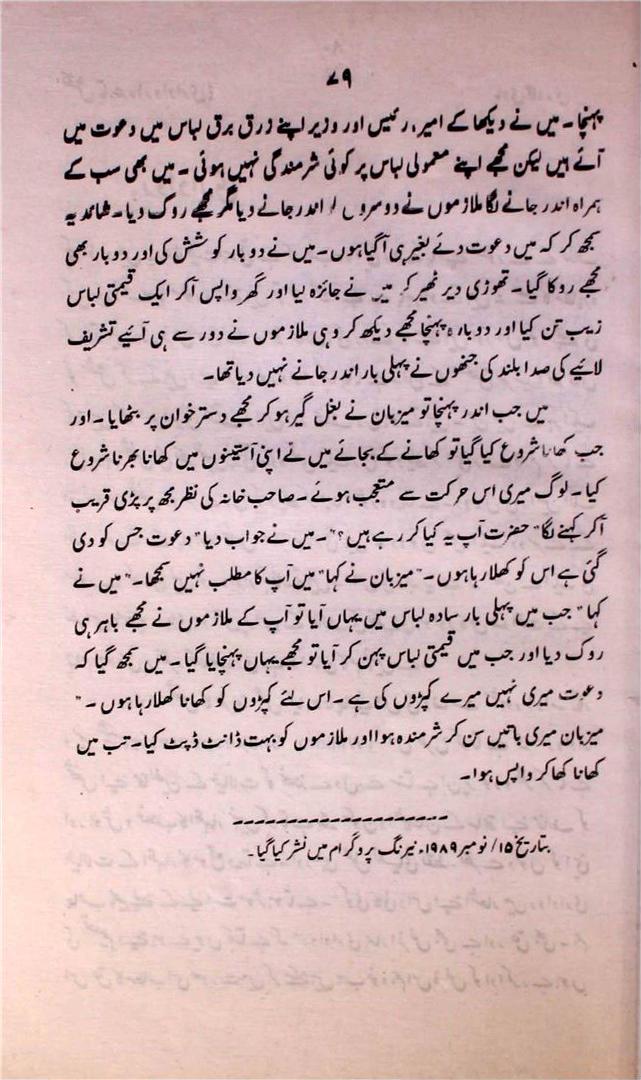 ۷۹
پہنچا۔ میں نے دیکھا کے امیر، رئیس اور وزیر اپنے زرق برق لباس میں دعوت میں
آئے ہیں لیکن مجھے اپنے معمولی لباس پر کوئی شرمندگی نہیں ہوئی۔ میں بھی سب کے
ہمراہ اندر جانے لگا ملازموں نے دوسروں اندر جانے دیا مگر مجھے روک دیا۔ شائد یہ
سمجھ کر کہ میں دعوت دئے بغیر ہی آگیا ہوں۔ میں نے دوبار کوشش کی اور دوبار بھی
مجھے روکا گیا۔ تھوڑی دیر ٹھیر کر میں نے جائزہ لیا اور گھر واپس آکر ایک قیمتی لباس
زیب تن کیا اور دوبارہ پہنچا مجھے دیکھ کر وہی ملازموں نے دور سے ہی آئیے تشریف
لائیے کی صدا بلند کی جنھوں نے پہلی بار اندر جانے نہیں دیا تھا۔
میں جب اندر پہنچا تو میزبان نے بغل گیر ہوکر مجھے دسترخوان پر بٹھایا۔ اور
جب کھانا شروع کیا گیا تو کھانے کے بجائے میں نے اپنی آستینوں میں کھانا بھرنا شروع
کیا۔ لوگ میری اس حرکت سے متعجب ہوئے۔ صاحب خانہ کی نظر مجھ پر پڑی قریب
آکر کہنے لگا "حضرت آپ یہ کیا کر رہے ہیں؟"۔ میں نے جواب دیا "دعوت جس کو دی
گئی ہے اس کو کھلا رہا ہوں۔" میزبان نے کہا "میں آپ کا مطلب نہیں سمجھا۔" میں نے
کہا "جب میں پہلی بار سادہ لباس میں یہاں آیا تو آپ کے ملازموں نے مجھے باہر ہی
روک دیا اور جب میں قیمتی لباس پہن کر آیا تو مجھے یہاں پہنچایا گیا۔ میں سمجھ گیا کہ
دعوت میری نہیں میرے کپڑوں کی ہے۔ اس لئے کپڑوں کو کھانا کھلا رہا ہوں۔"
میزبان میری باتیں سن کر شرمندہ ہوا اور ملازموں کو بہت ڈانٹ ڈپٹ کیا۔ تب میں
کھانا کھاکر واپس ہوا۔
بتاریخ ۱۵/ نومبر ۱۹۸۹ء نیرنگ پروگرام میں نشر کیا گیا۔